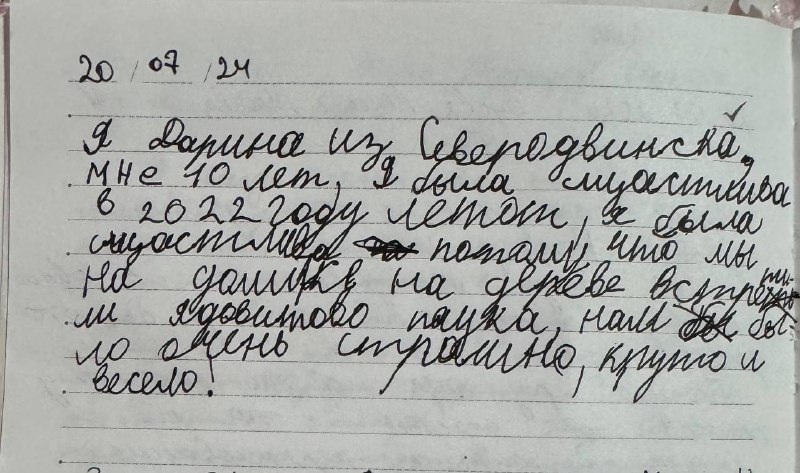 20/07/24
Я Дарина из Северодвинска,
мне 10 лет, я была счастлива
в 2022 году летом, я была
счастлива потому, что мы
на домике на дереве встрети-
ли ядовитово паука, нам бы-
ло очень страшно, круто и
весело!